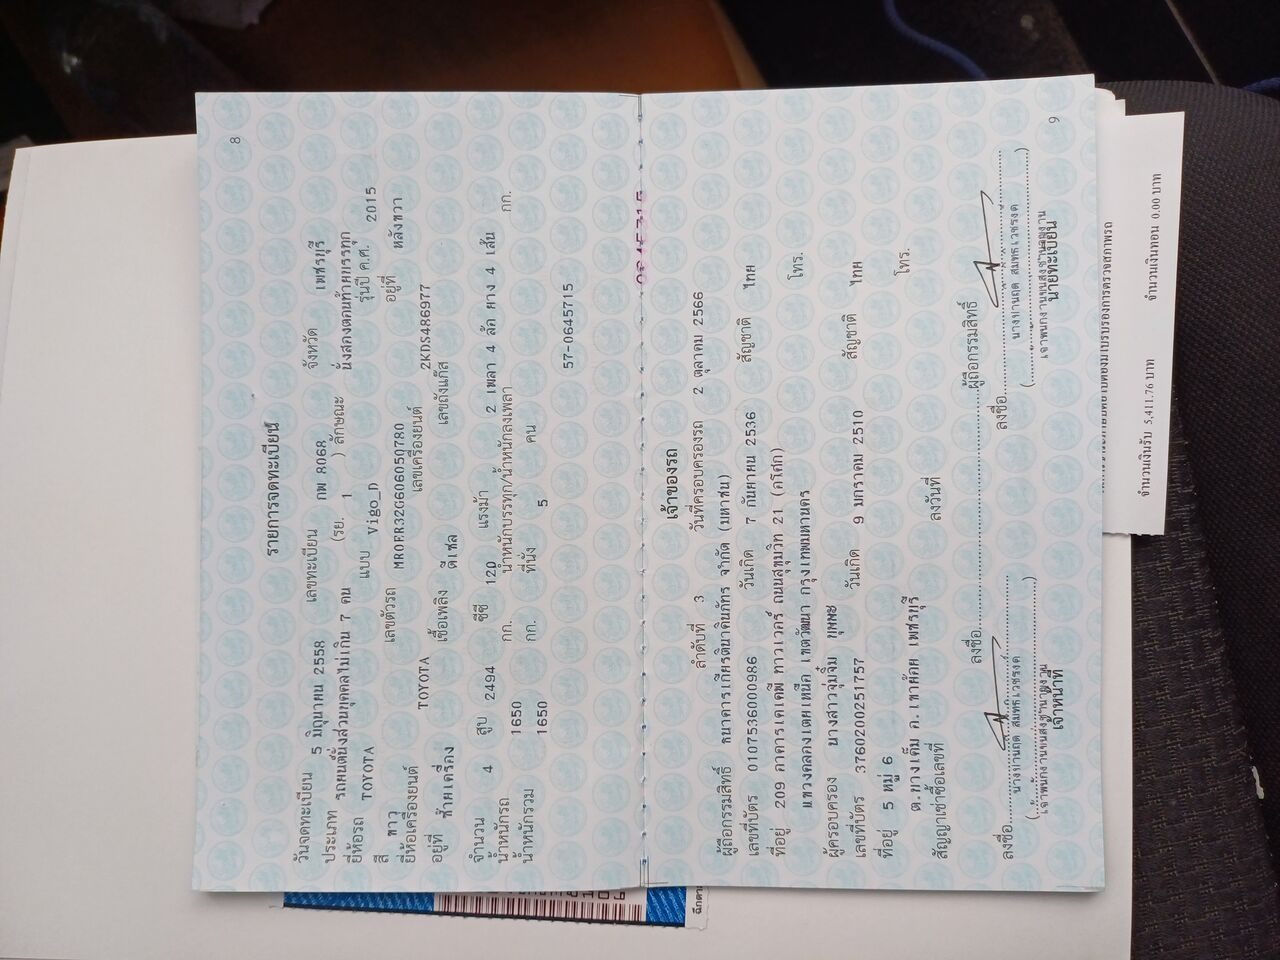 8
รายการจดทะเบียน
วันจดทะเบียน 5 มิถุนายน 2558 เลขทะเบียน กพ 8068 จังหวัด เพชรบุรี
ประเภท รถยนต์นั่งส่วนบุคคลไม่เกิน 7 คน (รย. 1 ) ลักษณะ นั่งสองตอนท้ายบรรทุก
ยี่ห้อรถ TOYOTA แบบ Vigo_D รุ่นปี ค.ศ. 2015
สี ขาว เลขตัวรถ MROFR32G606050780 อยู่ที่ หลังขวา
ยี่ห้อเครื่องยนต์ TOYOTA เลขเครื่องยนต์ 2KDS486977
อยู่ที่ ท้ายเครื่อง เชื้อเพลิง ดีเซล เลขถังแก๊ส
จำนวน 4 สูบ 2494 ซีซี 120 แรงม้า 2 เพลา 4 ล้อ ยาง 4 เส้น
น้ำหนักรถ 1650 กก. น้ำหนักบรรทุก/น้ำหนักลงเพลา กก.
น้ำหนักรวม 1650 กก. ที่นั่ง 5 คน
57-0645715
เจ้าของรถ
ลำดับที่ 3 วันที่ครอบครองรถ 2 ตุลาคม 2566
ผู้ถือกรรมสิทธิ์ ธนาคารเกียรตินาคินภัทร จำกัด (มหาชน)
เลขที่บัตร 0107536000986 วันเกิด 7 กันยายน 2536 สัญชาติ ไทย
ที่อยู่ 209 อาคารเคเคพี ทาวเวอร์ ถนนสุขุมวิท 21 (อโศก) โทร.
แขวงคลองเตยเหนือ เขตวัฒนา กรุงเทพมหานคร
ผู้ครอบครอง นางสาวจุ่มจิ๋ม
เลขที่บัตร 3760200251757 วันเกิด 9 มกราคม 2510 สัญชาติ ไทย
ที่อยู่ 5 หมู่ 6 โทร.
ต.บางเค็ม อ.เขาย้อย เพชรบุรี
สัญญาเช่าซื้อเลขที่ ลงวันที่
ลงชื่อ ผู้ถือกรรมสิทธิ์
ลงชื่อ ลงชื่อ
เจ้าพนักงานขนส่งชำนาญงาน เจ้าพนักงานขนส่งชำนาญงาน
เจ้าหน้าที่ นายทะเบียน
9
จำนวนเงินรับ 5,411.76 บาท จำนวนเงินทอน 0.00 บาท